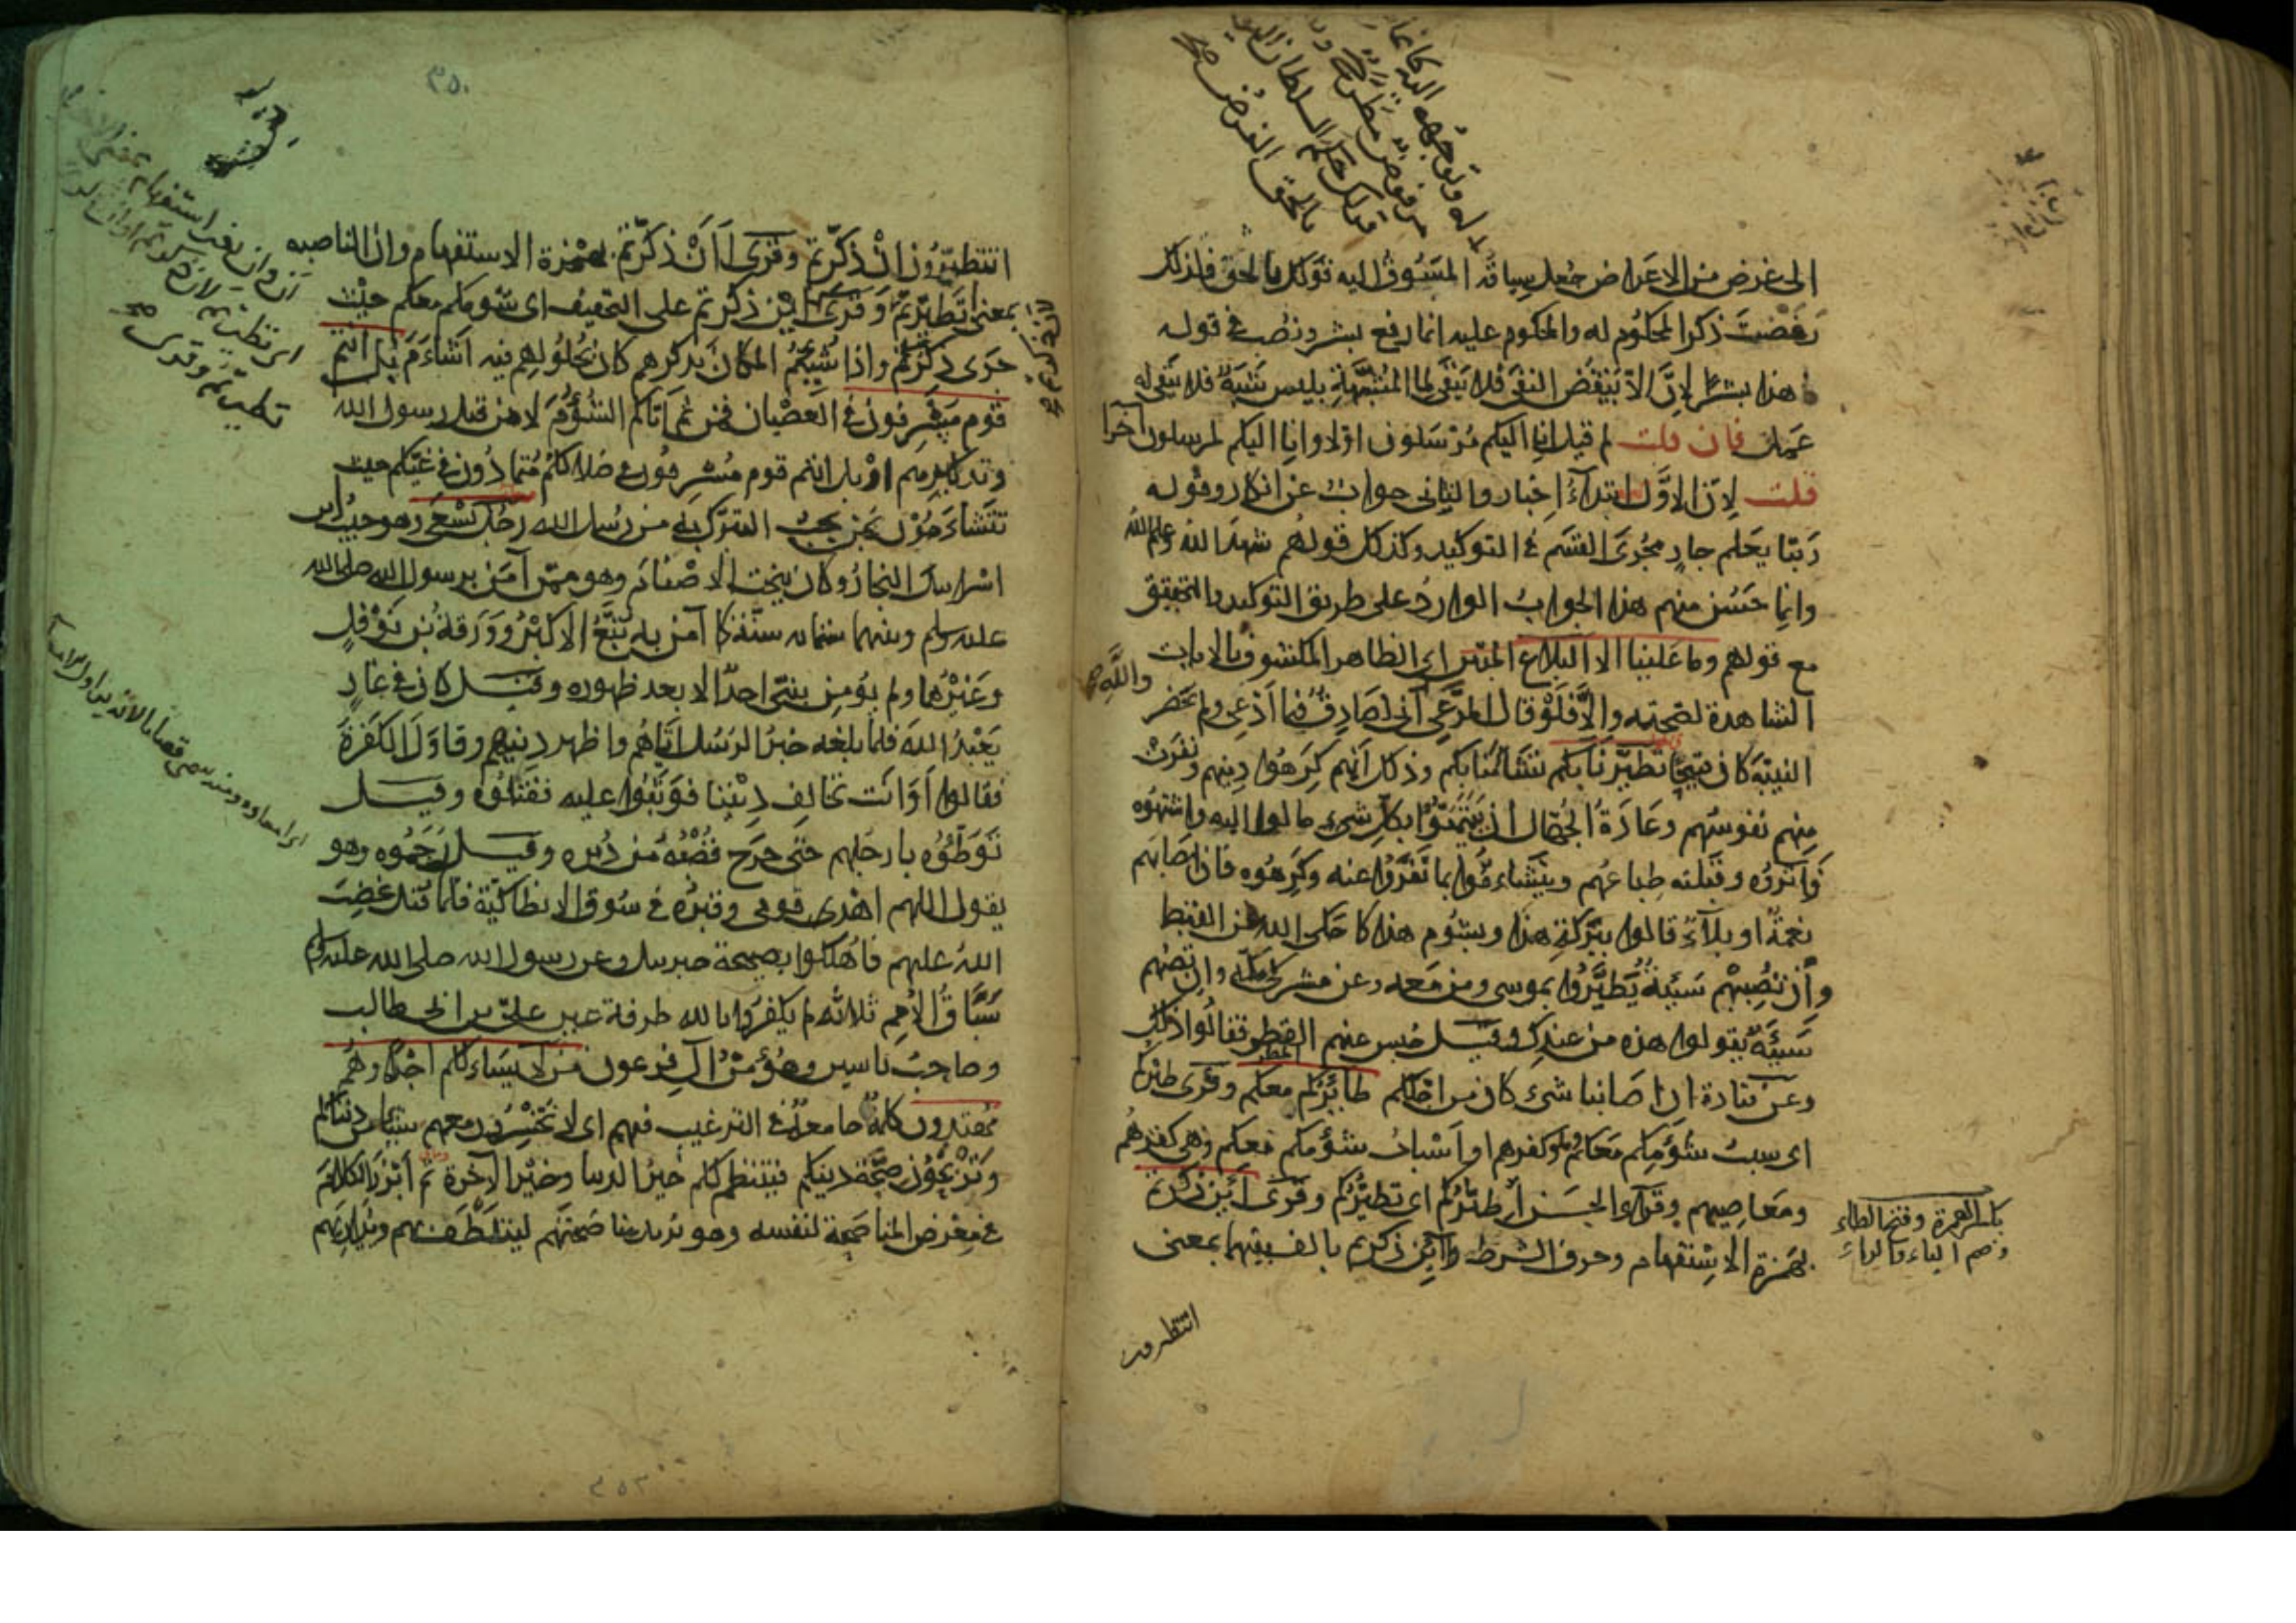 الى غرض من الاعراض جعل سياقه المسوق اليه قولك بالحق فلذلك
رفضت ذكر المحكوم له والمحكوم عليه انما رفع بشر ونصب في قوله
ما هذا بشرا لان الا ينقض النفى فلا يبقى لما المشبهة بليس شبه فلا يبقى له
عمل فان قلت لم قيل انا اليكم مرسلون اولا وانا اليكم لمرسلون آخرا
قلت لان الاول ابتداء اخبار والثانى جواب عن انكار وقوله
ربنا يعلم جار مجرى القسم في التوكيد وكذلك قولهم شهد الله وعلم الله
وانما حسن منهم هذا الجواب الوارد على طريق التوكيد والتحقيق
مع قولهم وما علينا الا البلاغ المبين اى الظاهر المكشوف بالايات
الشاهدة لصحته والا فلو قال المدعى والله انى لصادق فيما ادعى ولم يحضر
البينة كان قبيحا تطيرنا بكم تشاءمنا بكم وذلك انهم كرهوا دينهم ونفرت
منهم نفوسهم وعادة الجهال ان يتيمنوا بكل شىء مالوا اليه واشتهوه
وآثروه وقبلته طباعهم ويتشاءموا بما نفروا عنه وكرهوه فان اصابهم
نعمة او بلاء قالوا ببركة هذا وبشوم هذا كما حكى الله عن القبط
وان تصبهم سيئة يطيروا بموسى ومن معه وعن مشركى مكة وان تصبهم
سيئة يقولوا هذه من عندك وقيل حبس عنهم القطر فقالوا ذلك
المطر
وعن قتادة ان اصابنا شىء كان من اجلكم طائركم معكم وقرى طيركم
اى سبب شؤمكم معكم وهو كفرهم او اسباب شؤمكم معكم وهى كفرهم
ومعاصيهم وقرأ الحسن اطيركم اى تطيركم وقرى أئن ذكرتم
بهمزة الاستفهام وحرف الشرط وآئن ذكرتم بالف بينهما بمعنى
بكسر الهمزة وفتح الطاء
وضم الياء والراء
اتتطيرون
٣٥٠
اتتطيرون ان ذكرتم وقرى أأن ذكرتم بهمزة الاستفهام وان الناصبه
بمعنى اتطيرتم وقرى اين ذكرتم على التخفيف اى شومكم معكم حيث
جرى ذكركم واذا شئم المكان بذكرهم كان بحلولهم فيه اشأم بل انتم
قوم مسرفون في العصيان فمن ثم اتاكم الشؤم لا من قبل رسول الله
وتذكيرهم او بل انتم قوم مسرفون في ضلالكم متمادون في غيكم حيث
تتشاءمون بمن يجب التبرك به من رسل الله رجل يسعى وهو حبيب بن
اسرائيل النجار وكان ينحت الاصنام وهو ممن آمن برسول الله صلى الله
عليه وسلم وبينهما ستمائه سنة كما آمن به تبع الاكبر وورقة بن نوفل
وغيرهما ولم يؤمن بنبى احد الا بعد ظهوره وقيل كان في غار
يعبد الله فلما بلغه خبر الرسل اتاهم واظهر دينهم وقاول الكفرة
فقالوا أو انت تخالف ديننا فوثبوا عليه فقتلوه وقيل
توطؤه بارجلهم حتى خرج قصبه من دبره وقيل رجموه وهو
يقول اللهم اهدى قومى وقبره في سوق الانطاكية فلما قتل غضب
الله عليهم فاهلكوا بصيحة جبريل وعن رسول الله صلى الله عليه وسلم
سباق الامم ثلاثه لم يكفروا بالله طرفة عين على بن ابى طالب
وصاحب ياسين ومؤمن آل فرعون من لا يسألكم اجرا وهم
مهتدون كلمة جامعة في الترغيب فيهم اى لا تخسرون معهم شيئا من دنياكم
وتربحون صحة دينكم فينتظم لكم خير الدنيا وخير الآخرة ثم ابرز الكلام
في معرض المناصحة لنفسه وهو يريد مناصحتهم ليتلطف بهم ويداريهم